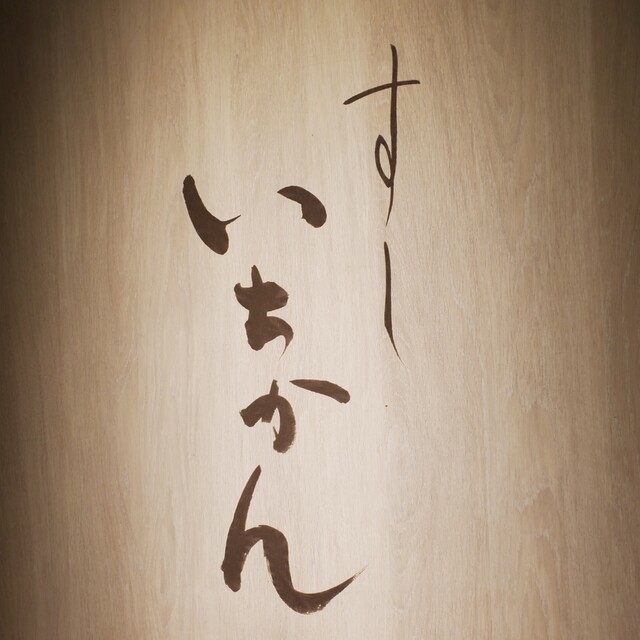 すし
いちかん